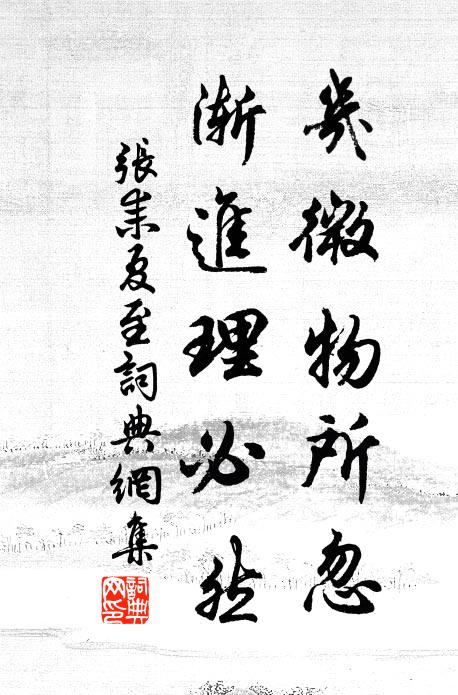 幾微物所忽
漸進理必然
張耒夏至詞典網集
詞典网印